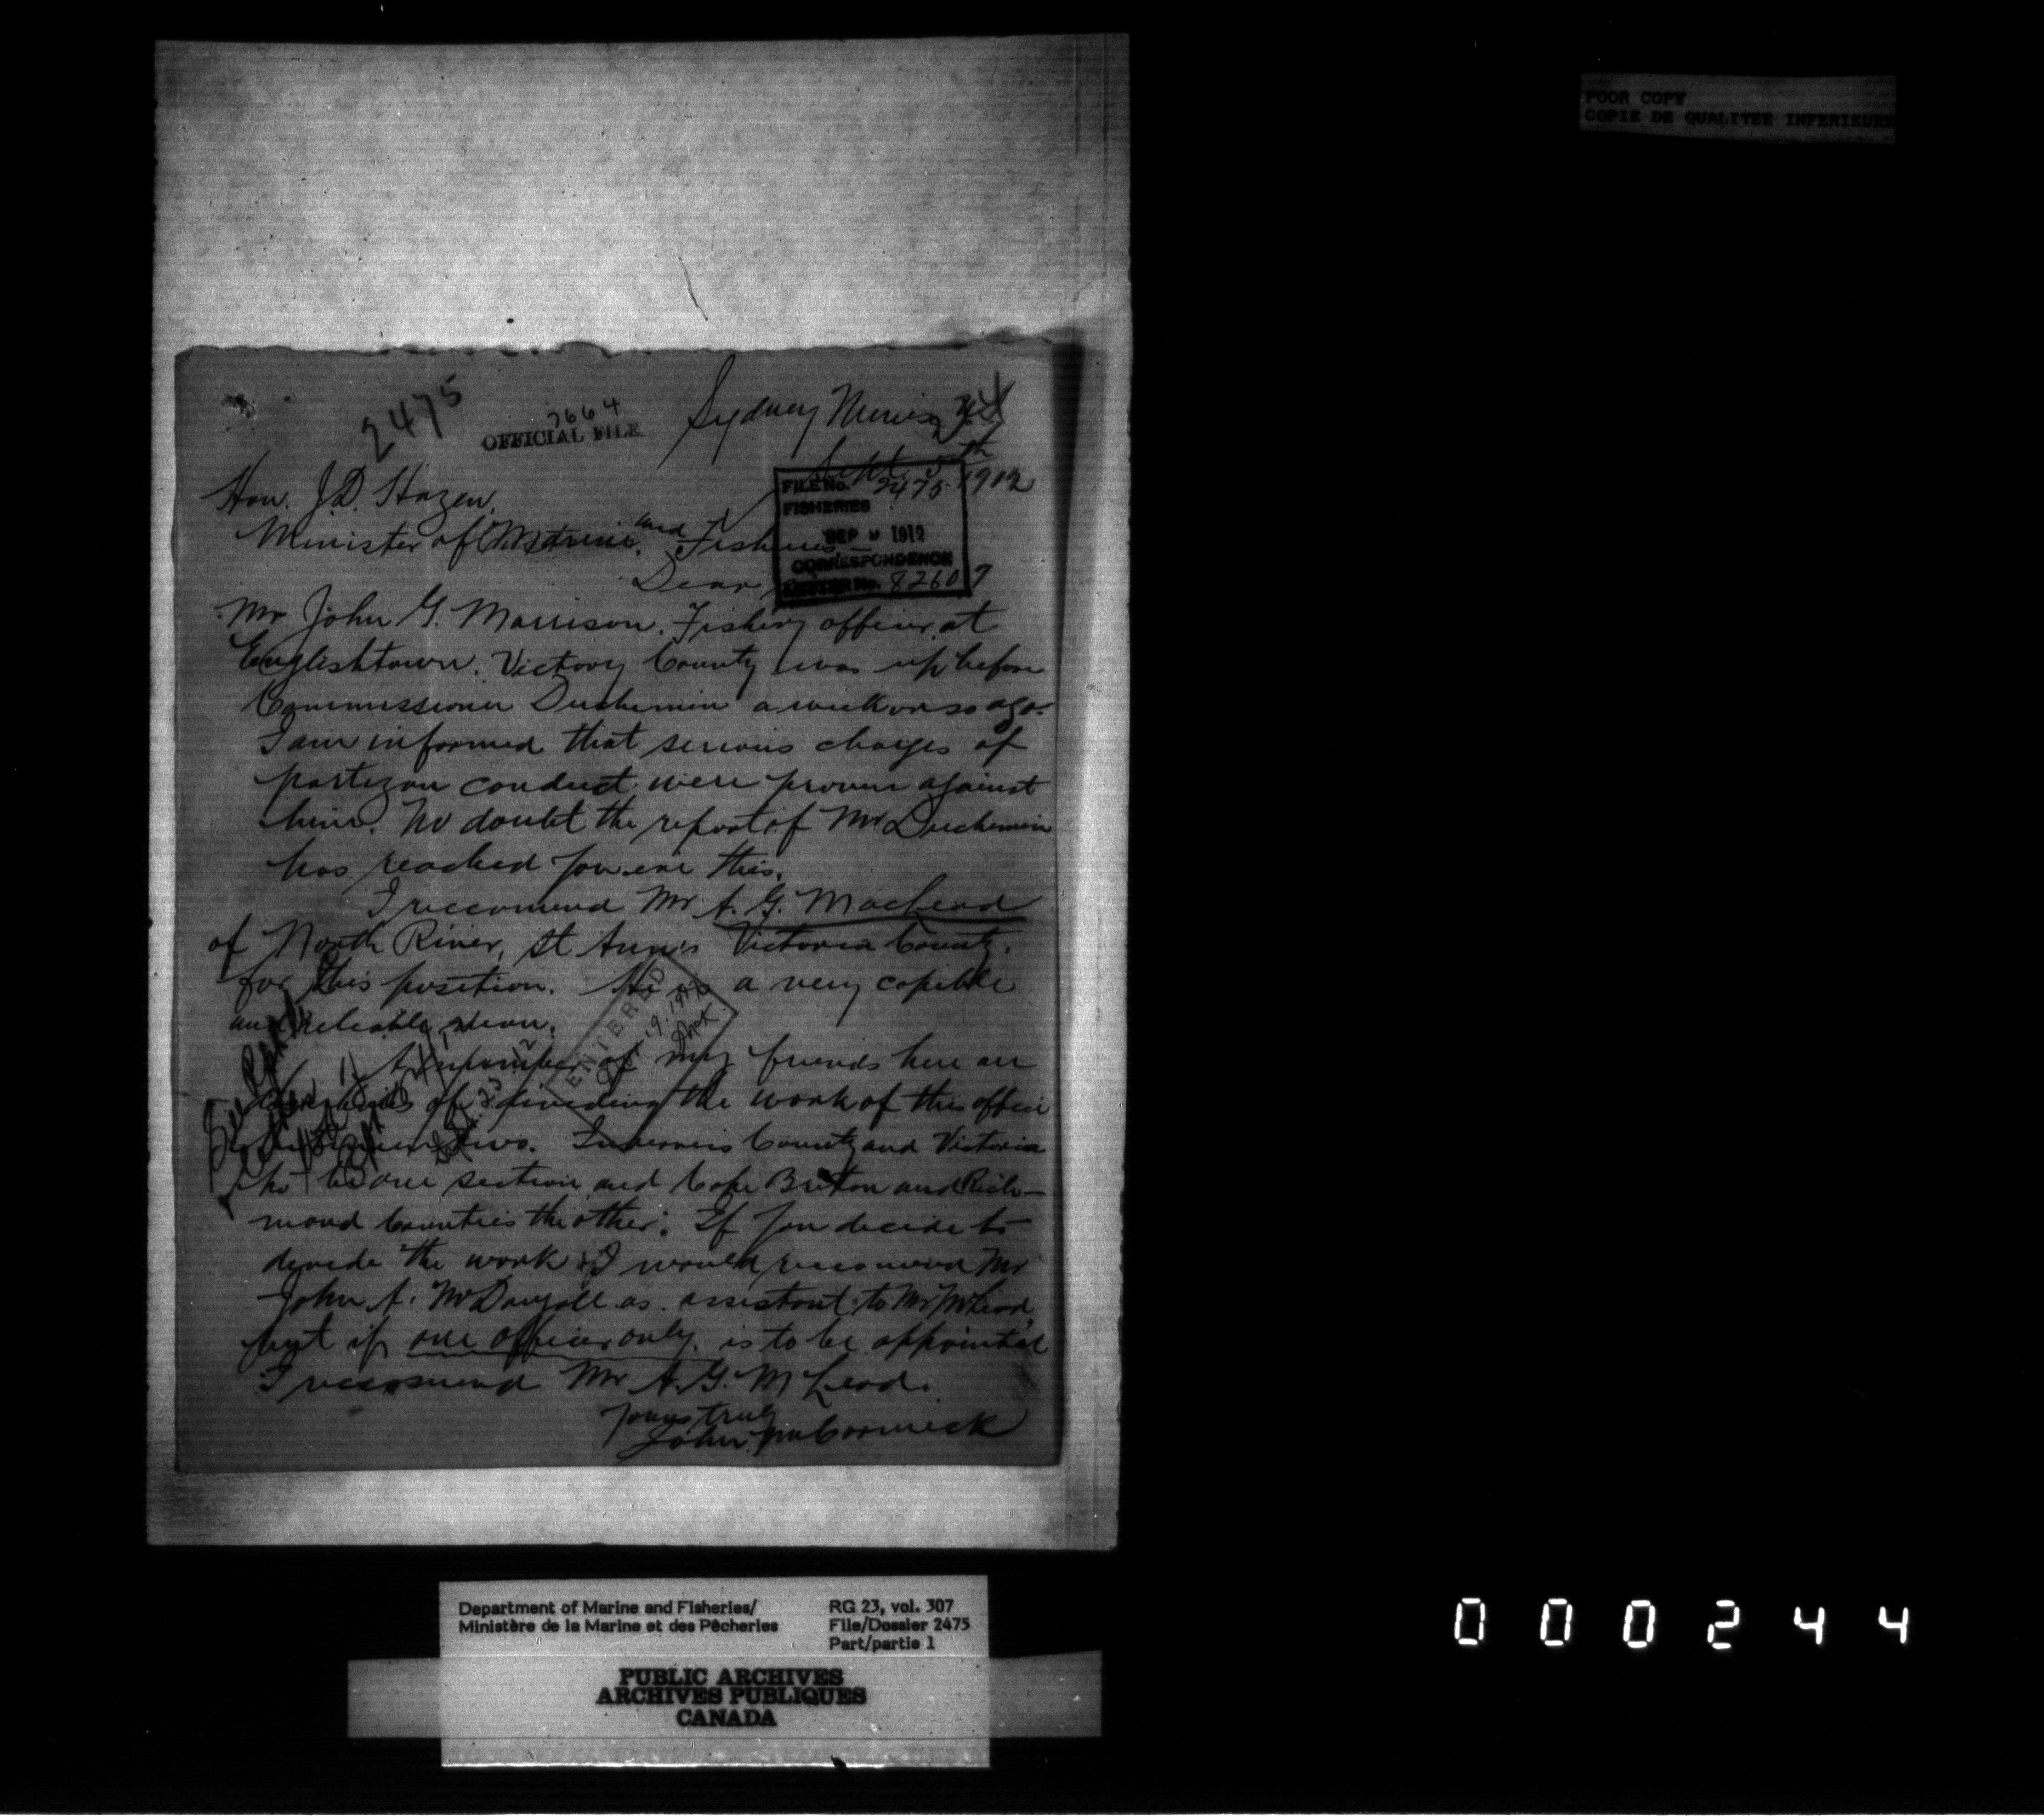 POOR COPY
COPIE DE QUALITEE INFERIEURE
2475
7664
OFFICIAL FILE
Sydney Mines
Sept. 5th 1912
Hon. J.D. Hazen,
Minister of Marine and Fisheries
FILE No. 2475
FISHERIES
SEP 9 1912
CORRESPONDENCE
LETTER No. 82607
Dear
Mr John G. Morrison, Fishery officer at
Englishtown, Victory County was up before
Commissioner Duchemin a week or so ago.
I am informed that serious charges of
partizan conduct were proven against
him. No doubt the report of Mr Duchemin
has reached you ere this.
I reccomend Mr A. G. MacLeod
of North River, St Ann's Victoria County.
for this position. He is a very capible
and reliable man.
ENTERED
A number of my friends here are
of dividing the work of this office
two. Inverness County and Victoria
to be one section and Cape Breton and Rich-
mond Counties the other. If you decide to
devide the work I would reccomend Mr
John A. McDougall as assistant to Mr McLeod,
but if one officer only is to be appointed
I reccomend Mr A. G. McLeod.
Yours truly
John McCormick
Department of Marine and Fisheries/
Ministère de la Marine et des Pêcheries
RG 23, vol. 307
File/Dossier 2475
Part/partie 1
PUBLIC ARCHIVES
ARCHIVES PUBLIQUES
CANADA
000244